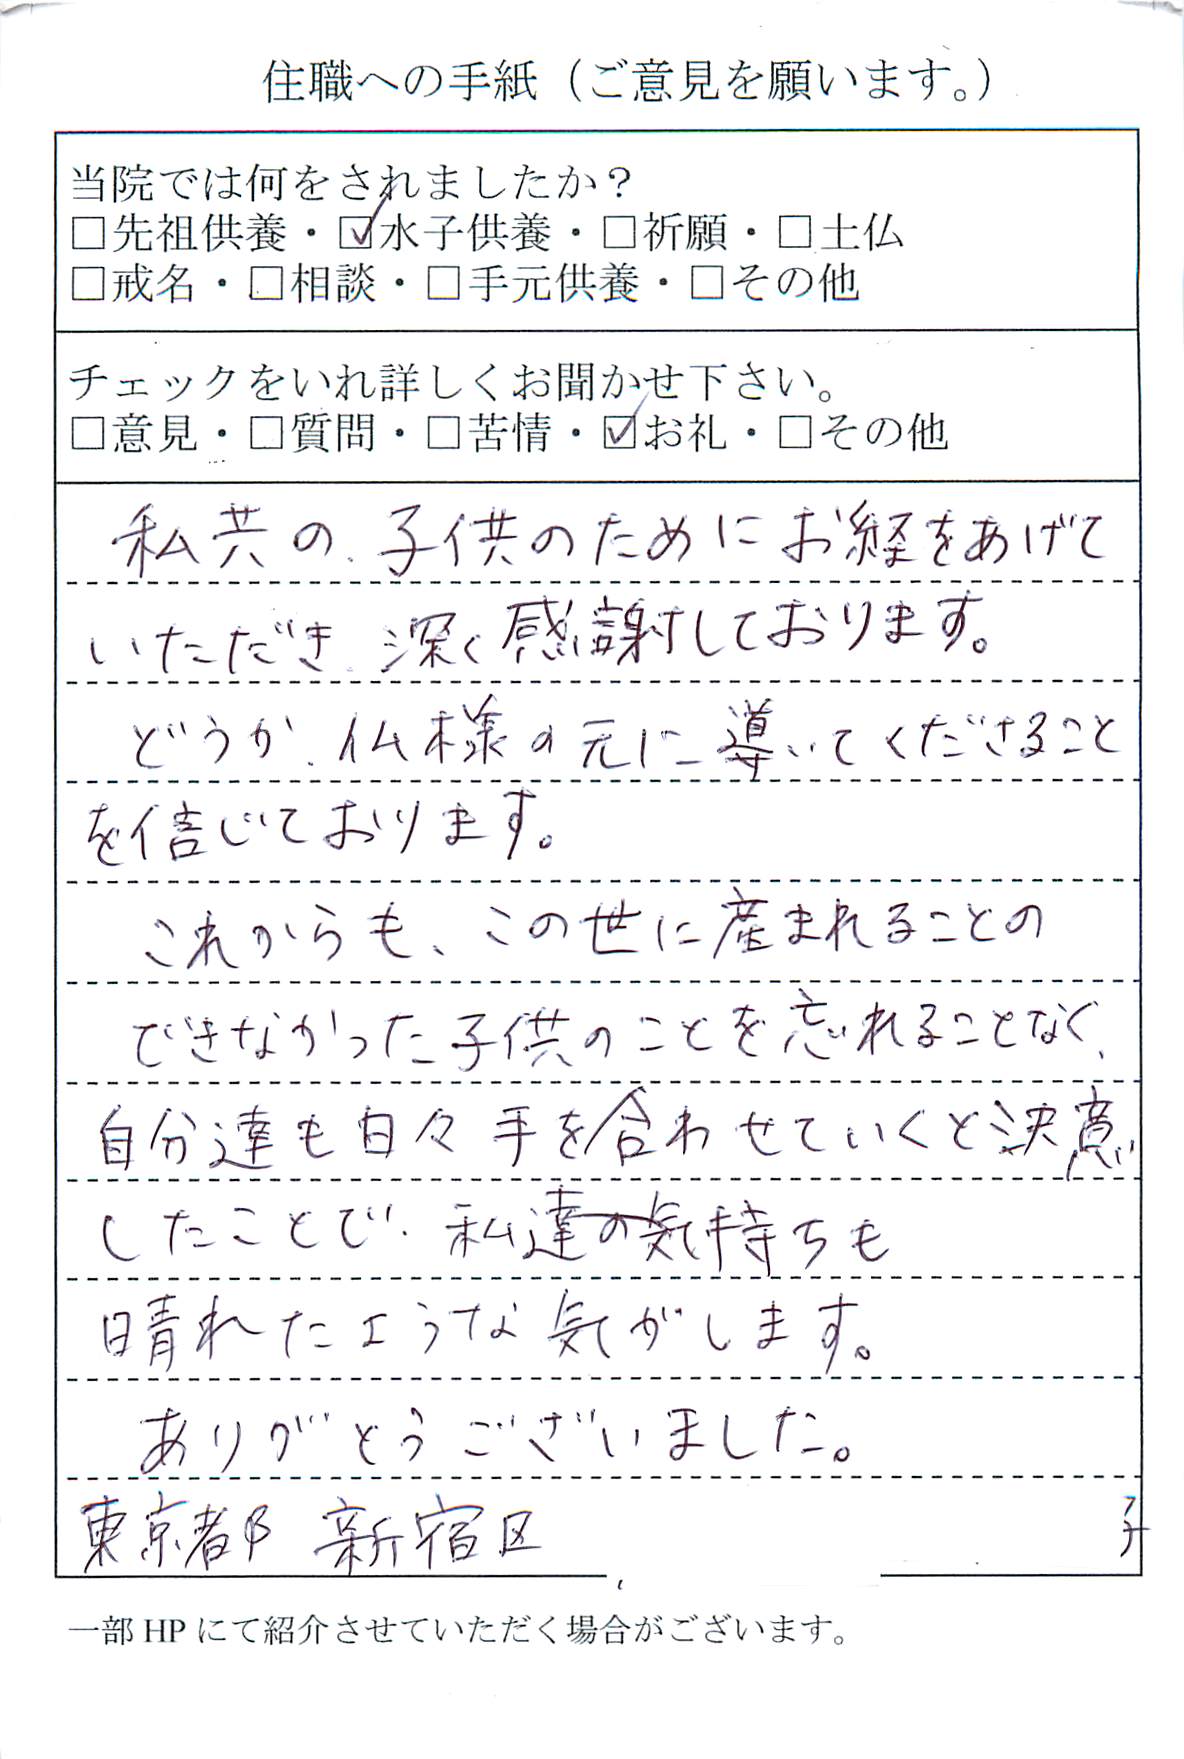 住職への手紙（ご意見を願います。）
当院では何をされましたか？
□先祖供養・☑水子供養・□祈願・□土仏
□戒名・□相談・□手元供養・□その他
チェックをいれ詳しくお聞かせ下さい。
□意見・□質問・□苦情・☑お礼・□その他
私共の、子供のためにお経をあげて
いただき、深く感謝しております。
どうか、仏様の元に導いてくださること
を信じております。
これからも、この世に産まれることの
できなかった子供のことを忘れることなく、
自分達も日々手を合わせていくと決意
したことで、私達の気持ちも
晴れたような気がします。
ありがとうございました。
東京都 新宿区 子
一部HPにて紹介させていただく場合がございます。